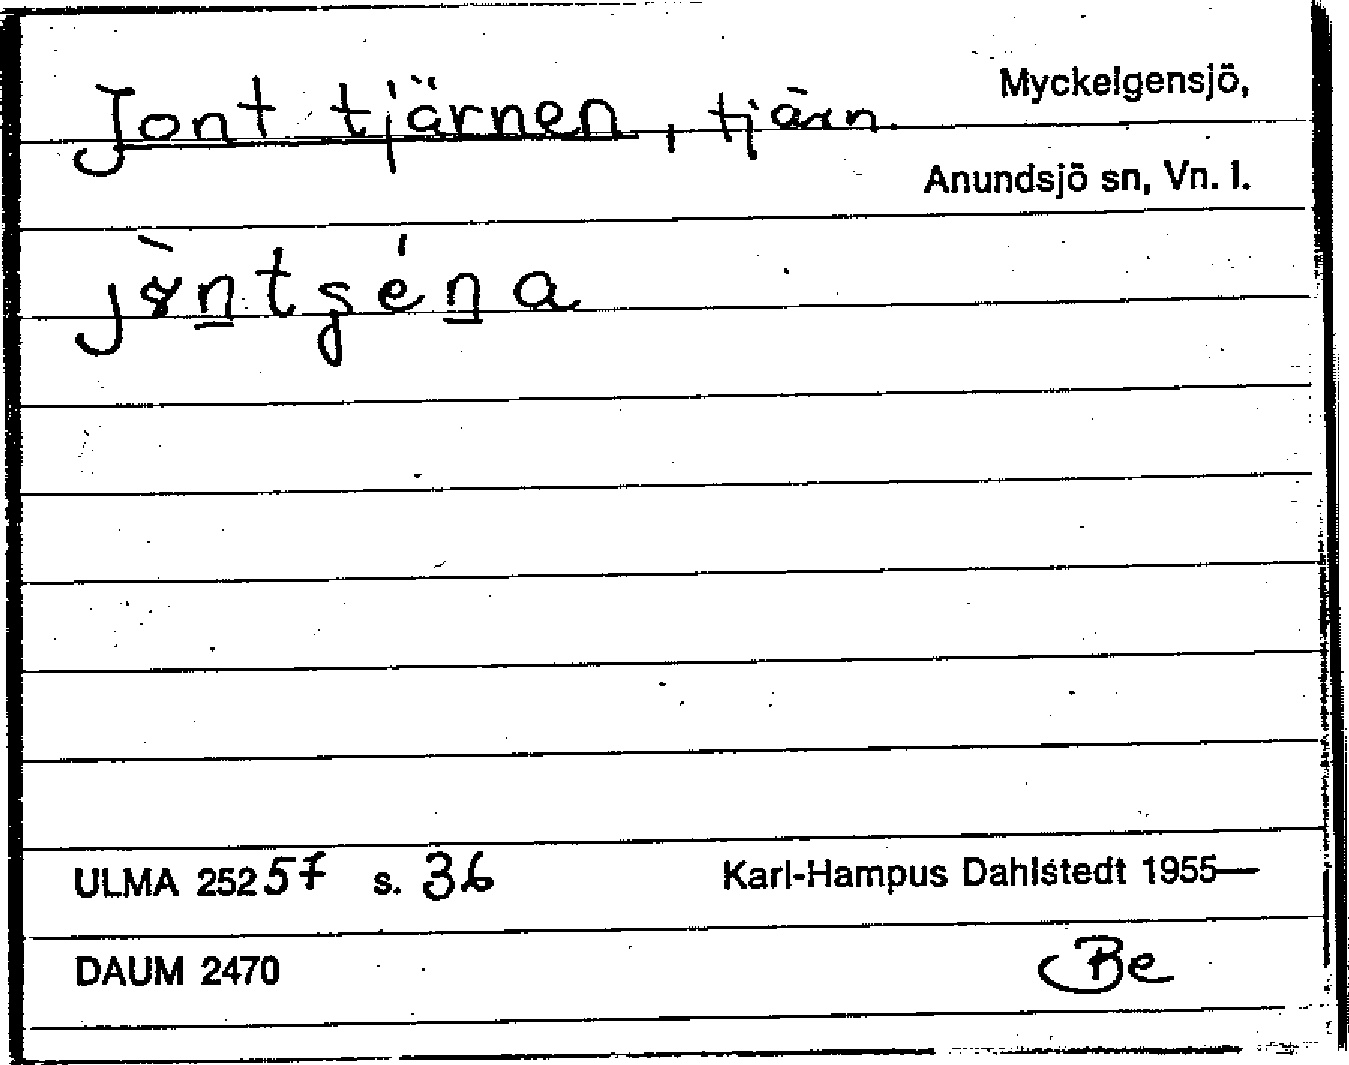 Jont tjärnen, tjärn. Myckelgensjö,
Anundsjö sn, Vn. l.
ULMA 25257 s. 36 Karl-Hampus Dahlstedt 1955—
DAUM 2470 Be